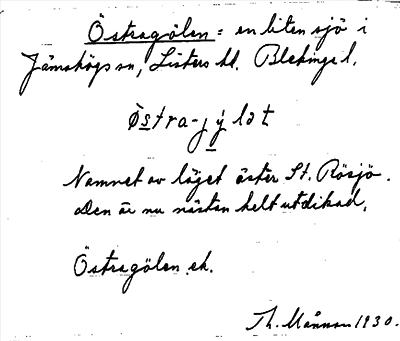 Östragölen = en liten sjö i
Jämshögs sn, Listers hd. Blekinge l.
Östra-jylət
Namnet av läget öster St. Rösjö.
Den är nu nästan helt utdikad.
Östragölen ek.
Th. Månsson 1930.